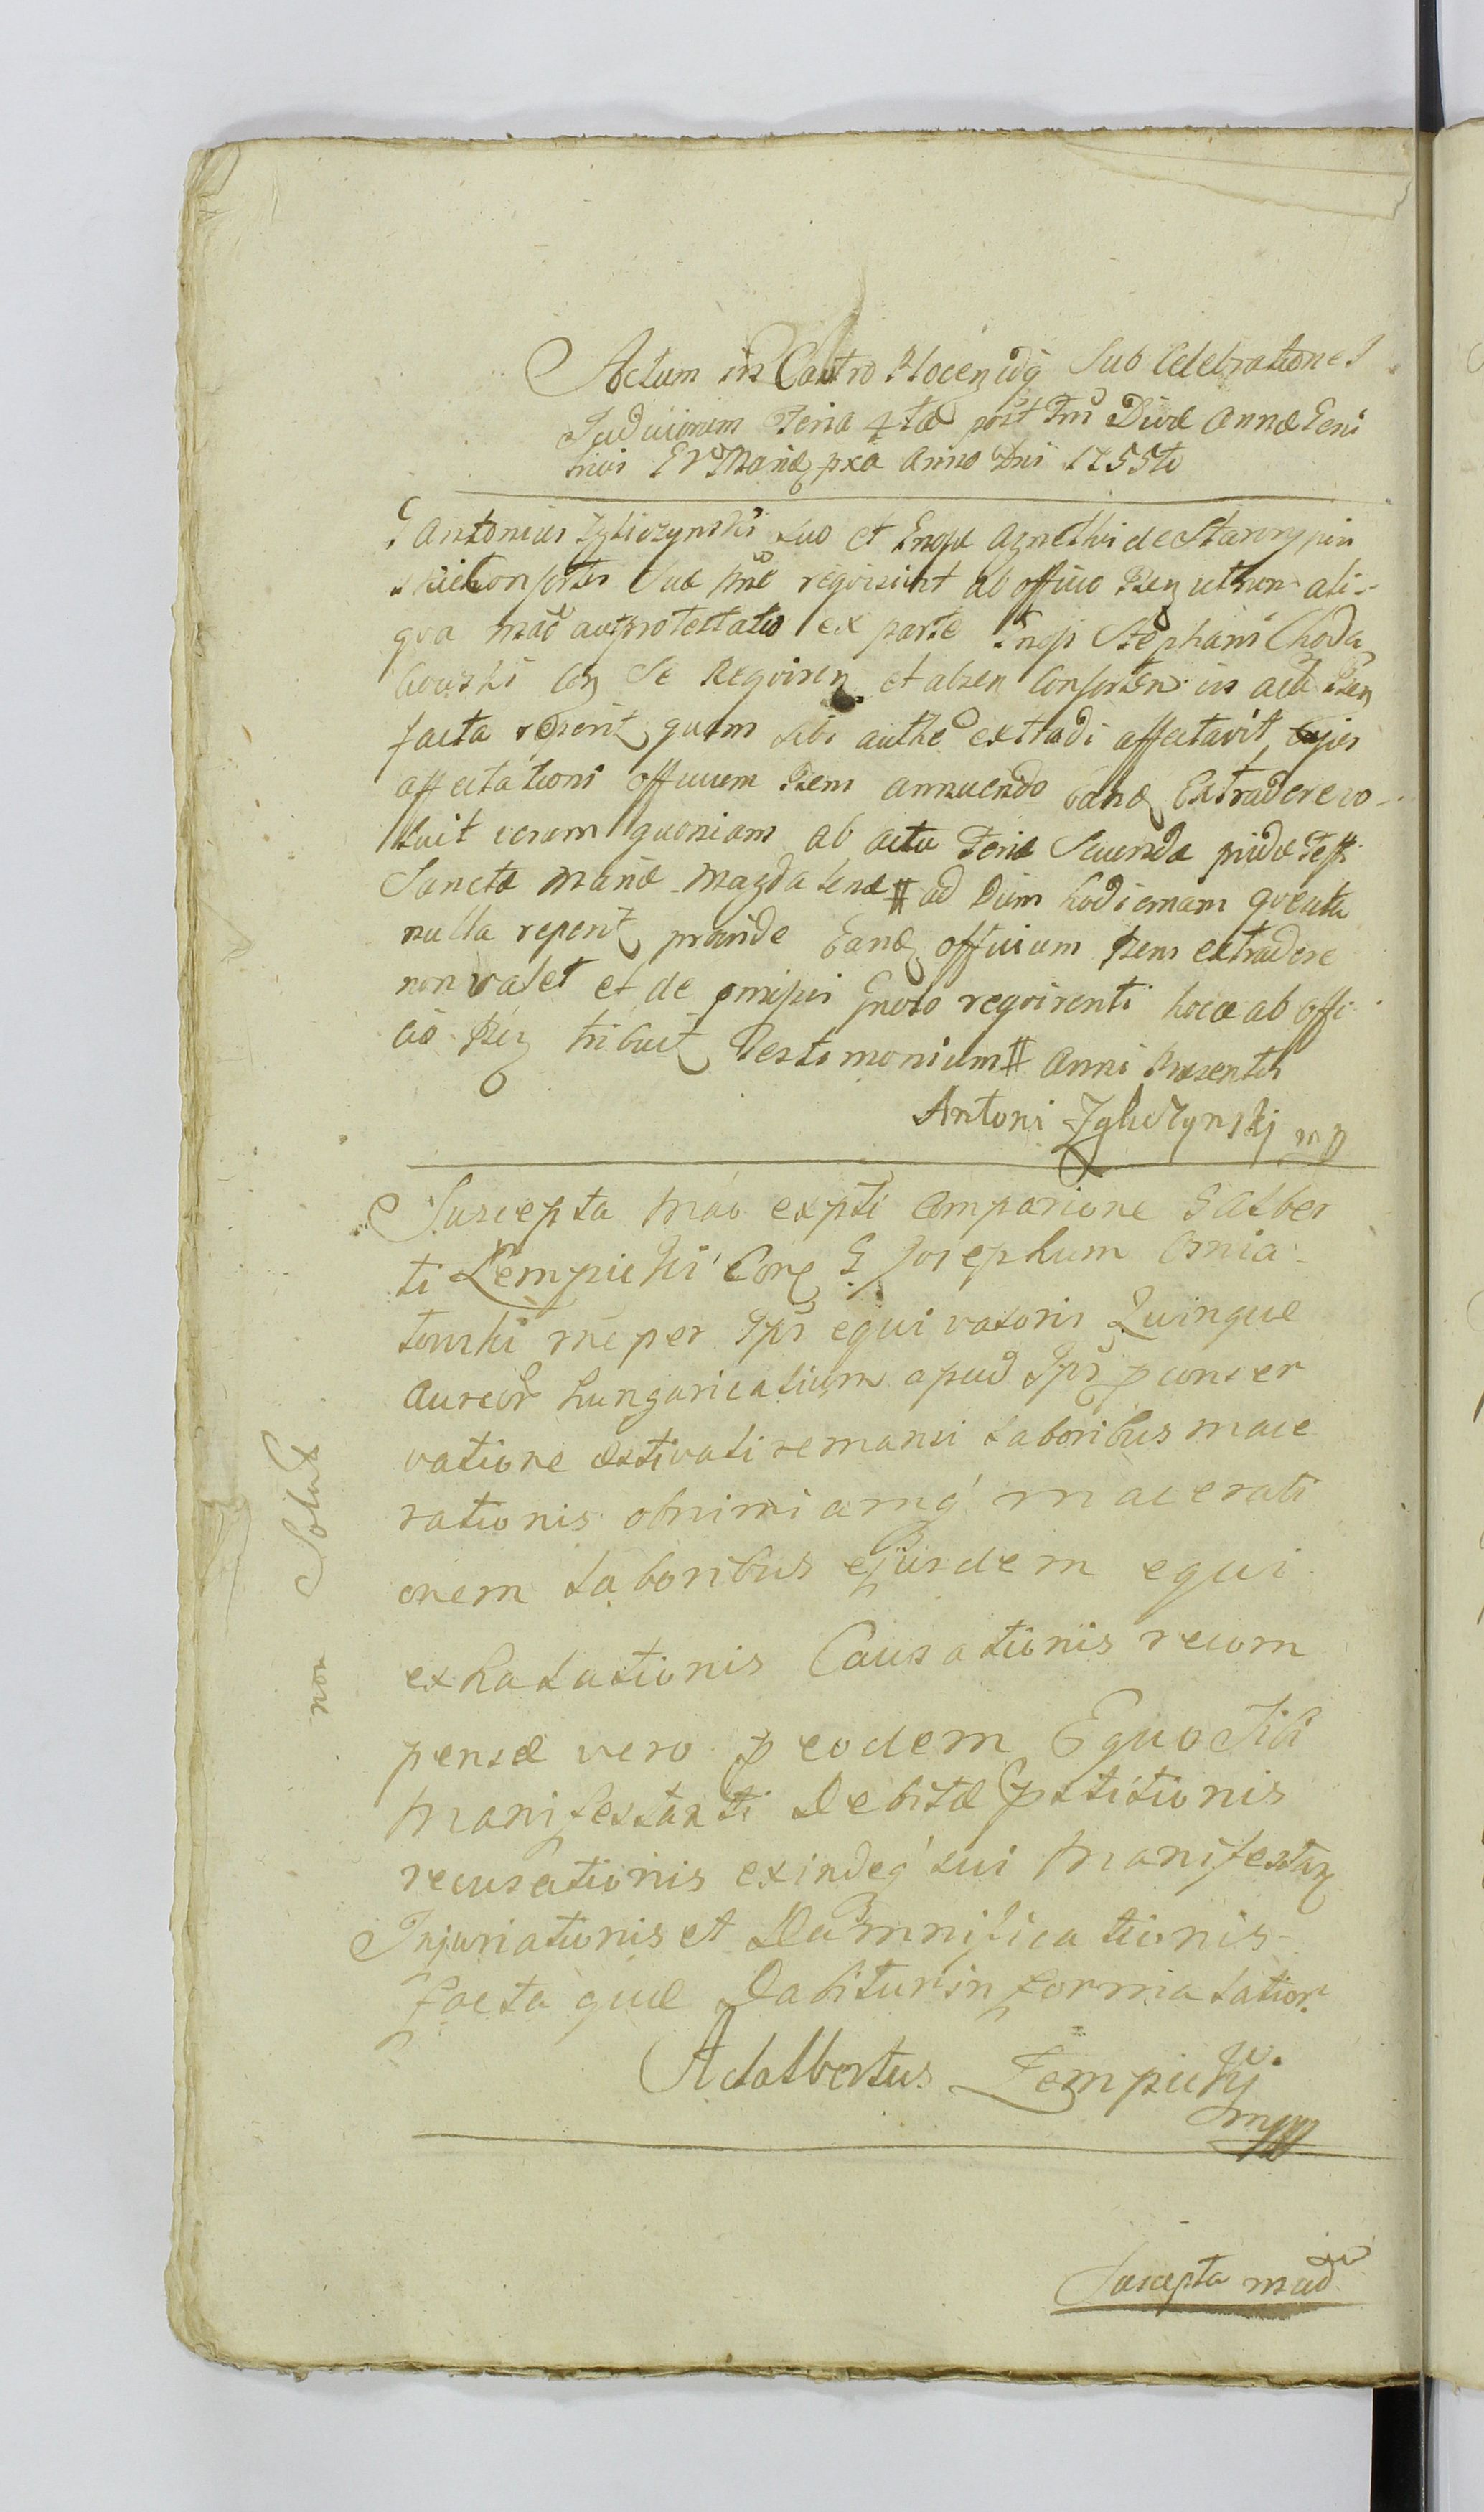 Actum in Castro Plocen idq Sub Celebratione
Judiciorum Feria 4ta post Fm Divæ Annæ Geni
tricis BV Mariæ pxa Anno Dni 1755to
G Antonius Zgliczynski suo et Gnosæ Agnethis de StaroryPin
skie Consortis suæ nne reqvisivit ab officio Psen utrum ali-
qva Mao aut protestatio ex parte Gnosi Stephani Choda
kowski con Se Reqviren et alsen Consortem in actis Psen
facta reperit quam sibi authe extradi affectavit, cujus
affectationi officium Psens annuendo Eand Extradere vo-
luit verum quoniam ab actu Feriæ Secundæ pridie Festi
Sanctæ Mariæ Magdalenæ # ad Diem hodiernam qvesita
nulla reperit, proinde Eand officium Psens extradere
non valet et de præmissis Gnoso reqvirenti hocce ab offi
cio Psen tribuit Testimonium # Anni Præsentis
Antoni Zgliczynski mp
Suscepta Mao expti Comparione G Alber
ti Lempicki Con G Josephum
towski rne per Ips equi valoris Quinque
Aureor hungaricalium apud Ips p conser
vatione æstivali remansi laboribus mace
rationis obnimiamq macerati
onem laboribus ejusdem equi
exhalationis Causationis recom
pensæ vero p eodem Equo Sibi
Manifestanti Debitæ pstitionis
recusationis exindeq sui Manifestan
Injuriationis et Damnificationis
facta quæ Dabitur in forma latior
Adalbertus Lempicki
mpp
non Solut
Suscepta mao